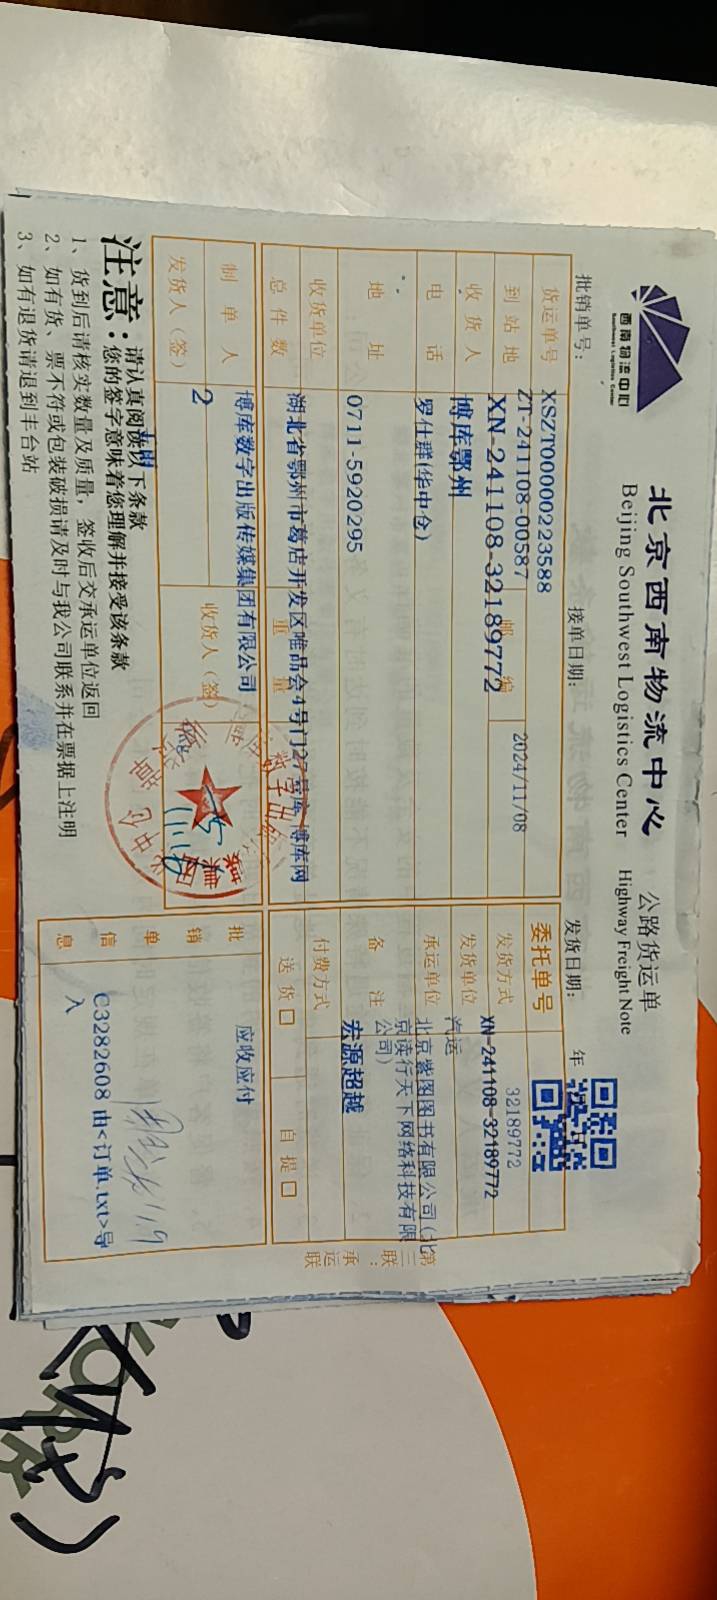 西南物流中心
Southwest Logistics Center
北京西南物流中心
Beijing Southwest Logistics Center
公路货运单
Highway Freight Note
批销单号：
接单日期：
发货日期：
年
月
日
货运单号
XSZT00000223588
ZT-241108-00587
2024/11/08
委托单号
32189772
到站地
XN-241108-32189772
邮编
发货方式
XN-241108-32189772
汽运
收货人
博库鄂州
发货单位
北京紫图图书有限公司(北京读行天下网络科技有限公司)
电话
罗仕群(华中仓)
承运单位
宏源超越
地址
0711-5920295
备注
收货单位
湖北省鄂州市葛店开发区唯品会4号门27号库 博库网
付费方式
总件数
重量
送货 □
自提 □
博库数字出版传媒集团有限公司
制单人
2
收货人（签）
发货人（签）
批销单信息
应收应付
C3282608 由<订单.txt>导入
11.9
第三联：承运联
注意：
请认真阅读以下条款
您的签字意味着您理解并接受该条款
1、货到后请核实数量及质量，签收后交承运单位返回
2、如有货、票不符或包装破损请及时与我公司联系并在票据上注明
3、如有退货请退到丰台站